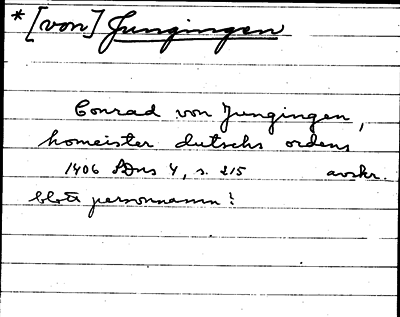 * [von] Jungingen
Conrad von Jungingen,
homeister dutschs ordens
1406 SDns 4, s. 215 avskr.
blott personnamn?